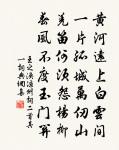 黄河遠上白雲間
一片孤城萬仞山
羌笛何須怨楊柳
春風不度玉門關
王之渙涼州詞二首其
一詞典網